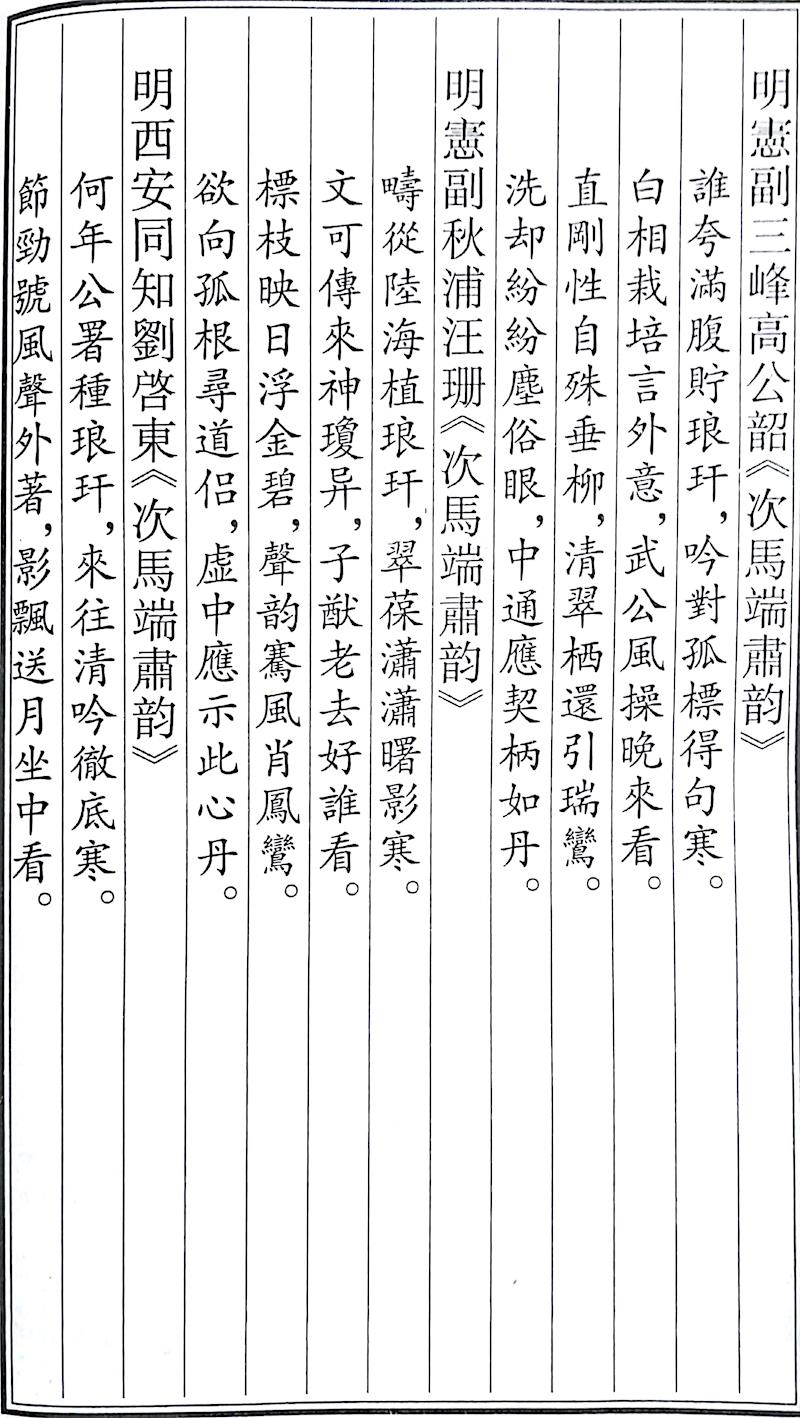 明憲副三峰高公韶《次馬端肅韵》
誰夸滿腹貯琅玕，吟對孤標得句寒。
白相栽培言外意，武公風操晚來看。
直剛性自殊垂柳，清翠栖還引瑞鸞。
洗却紛紛塵俗眼，中通應契柄如丹。
明憲副秋浦汪珊《次馬端肅韵》
疇從陸海植琅玕，翠葆瀟瀟曙影寒。
文可傳來神瓊异，子猷老去好誰看。
標枝映日浮金碧，聲韵騫風肖鳳鸞。
欲向孤根尋道侣，虚中應示此心丹。
明西安同知劉啓東《次馬端肅韵》
何年公署種琅玕，來往清吟徹底寒。
節勁號風聲外著，影飄送月坐中看。